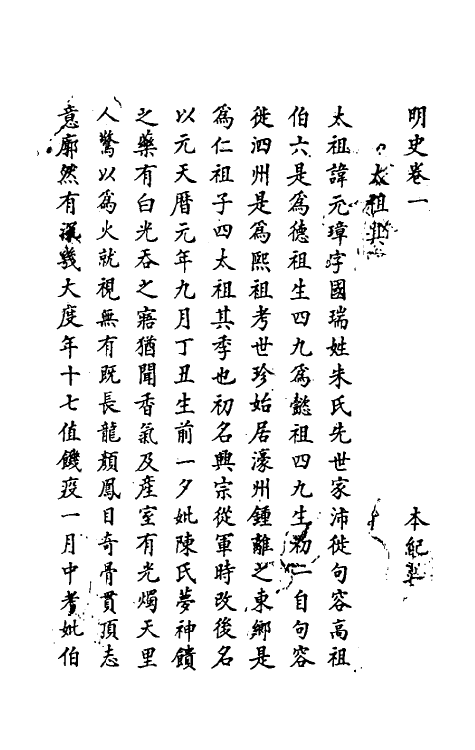 明史卷一 本紀
太祖
太祖諱元璋字國瑞姓朱氏先世家沛徙句容高祖
伯六是為德祖生四九為懿祖四九生初一自句容
徙泗州是為熙祖考世珍始居濠州鍾離之東鄉是
為仁祖子四太祖其季也初名興宗從軍時改後名
以元天曆元年九月丁丑生前一夕妣陳氏夢神饋
之藥有白光吞之寤猶聞香氣及產室有光燭天里
人驚以為火就視無有既長龍顏鳳目奇骨貫頂志
意廓然有大度年十七值饑疫一月中考妣伯